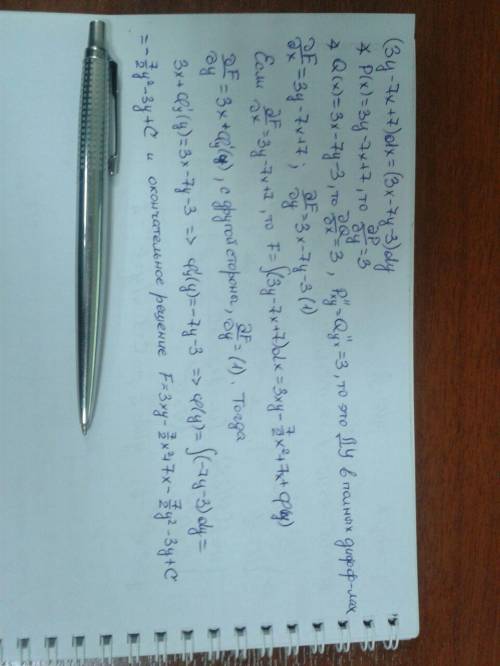 (3y-7x+7)dx=(3x-7y-3)dy
* P(x)=3y-7x+7, то ∂P/∂y=3
* Q(x)=3x-7y-3, то ∂Q/∂x=3, P"xy=Q"yx=3, то это ДУ в полных дифф-лах
∂F/∂x=3y-7x+7; ∂F/∂y=3x-7y-3 (1)
Если ∂F/∂x=3y-7x+7, то F=∫(3y-7x+7)dx=3xy-7/2x²+7x+φ(y)
∂F/∂y=3x+φ'(y), с другой стороны, ∂F/∂y=(1). Тогда
3x+φ'(y)=3x-7y-3 => φ'(y)=-7y-3 => φ(y)=∫(-7y-3)dy=
=-7/2y²-3y+C и окончательное решение F=3xy-7/2x²+7x-7/2y²-3y+C